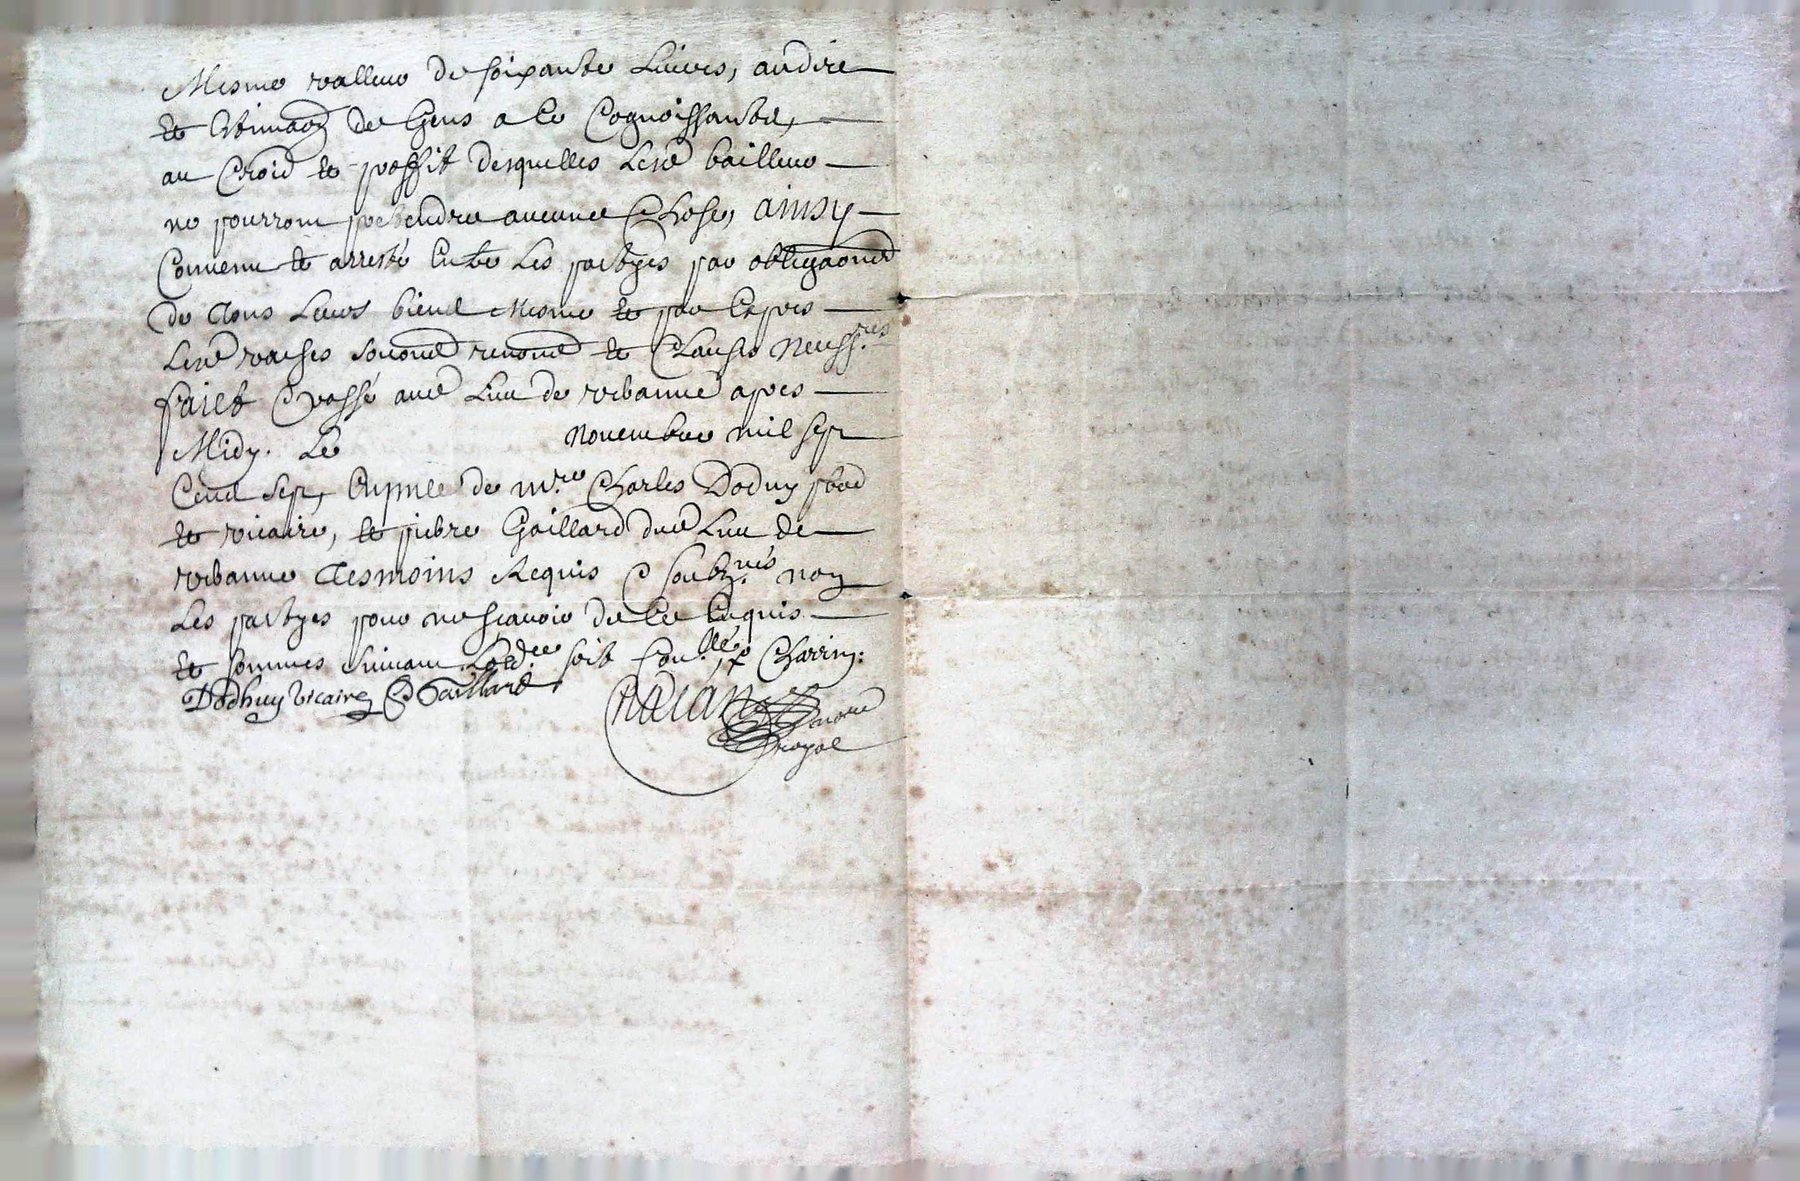 Mesme valleur de soixante Livres, au dire
et Estimaon de Gens a ce Cognoissants,
au Croid et proffit desquelles Lesd bailleurs
ne pourront pretendre aucune Chose, ainsy
Convenu et arresté Entre Les partyes par obligaons
de Tous Leurs biens mesme et par Expres
Lesd vaches soubmons renons et Clauses necess.res
faict & passé aud Lieu de vebanne apres
Midy. Le novembre mil sept
Cens sept, En pnce de m.re Charles Doduy pbre
et vicaire, et pierre Gaillard dud Lieu de
vebanne Tesmoins Requis & soubz.nés non
Les partyes pour ne scavoir de ce Enquis
et sommes suivant Lord.ce soit Con.llé p Charrin:
Dodhuy vicaire Gaillard
nore
royal